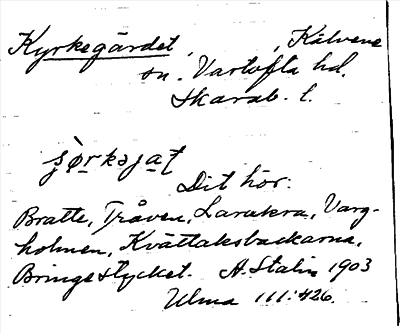 Kyrkegärdet, , Kälvene
sn. Vartofta hd.
Skarab. l.
Dit hör:
Bratte, Tråven, Larukra, Varg-
holmen, Kvättaksbackarna,
Bringestycket. A. Stalin 1903
Ulma 111:426.